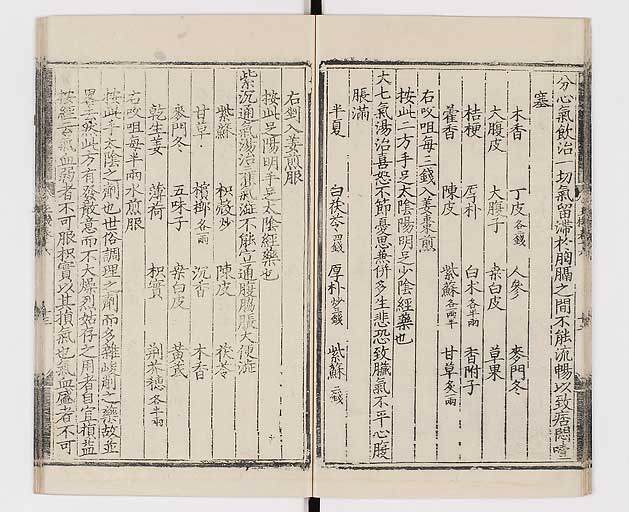 分心氣飲治一切氣留滯於胸膈之間不能流暢以致痞悶噎
塞
木香 丁皮各錢 人參 麥門冬
大腹皮 大腹子 桑白皮 草果
桔梗 厚朴 白木各半兩 香附子
藿香 陳皮 紫蘇各一兩半 甘草炙一兩
右㕮咀每三錢入姜棗煎
按此二方手足太陰陽明足少陰經藥也
大七氣湯治喜怒不節憂思兼併多生悲恐致臟氣不平心腹
脹滿
半夏 白茯苓 厚朴炒 紫蘇二錢
右剉入姜煎服
按此足陽明手足太陰經藥也
紫沉通氣湯治三焦氣澁不能宣通腹脇脹大便澁
紫蘇 枳殼炒 陳皮 茯苓
甘草 檳榔各一兩 沉香 木香
麥門冬 五味子 桑白皮 黃芪
乾生姜 薄荷 枳實 荆芥穗各半兩
右㕮咀每半兩水煎服
按此手太陰之劑也世俗調理之劑而多雜峻削之藥故並
畧去於此方有發散意而不大燥烈姑存之用者自宜損益
按經云氣血弱者不可服枳實以其損氣也氣血盛者不可